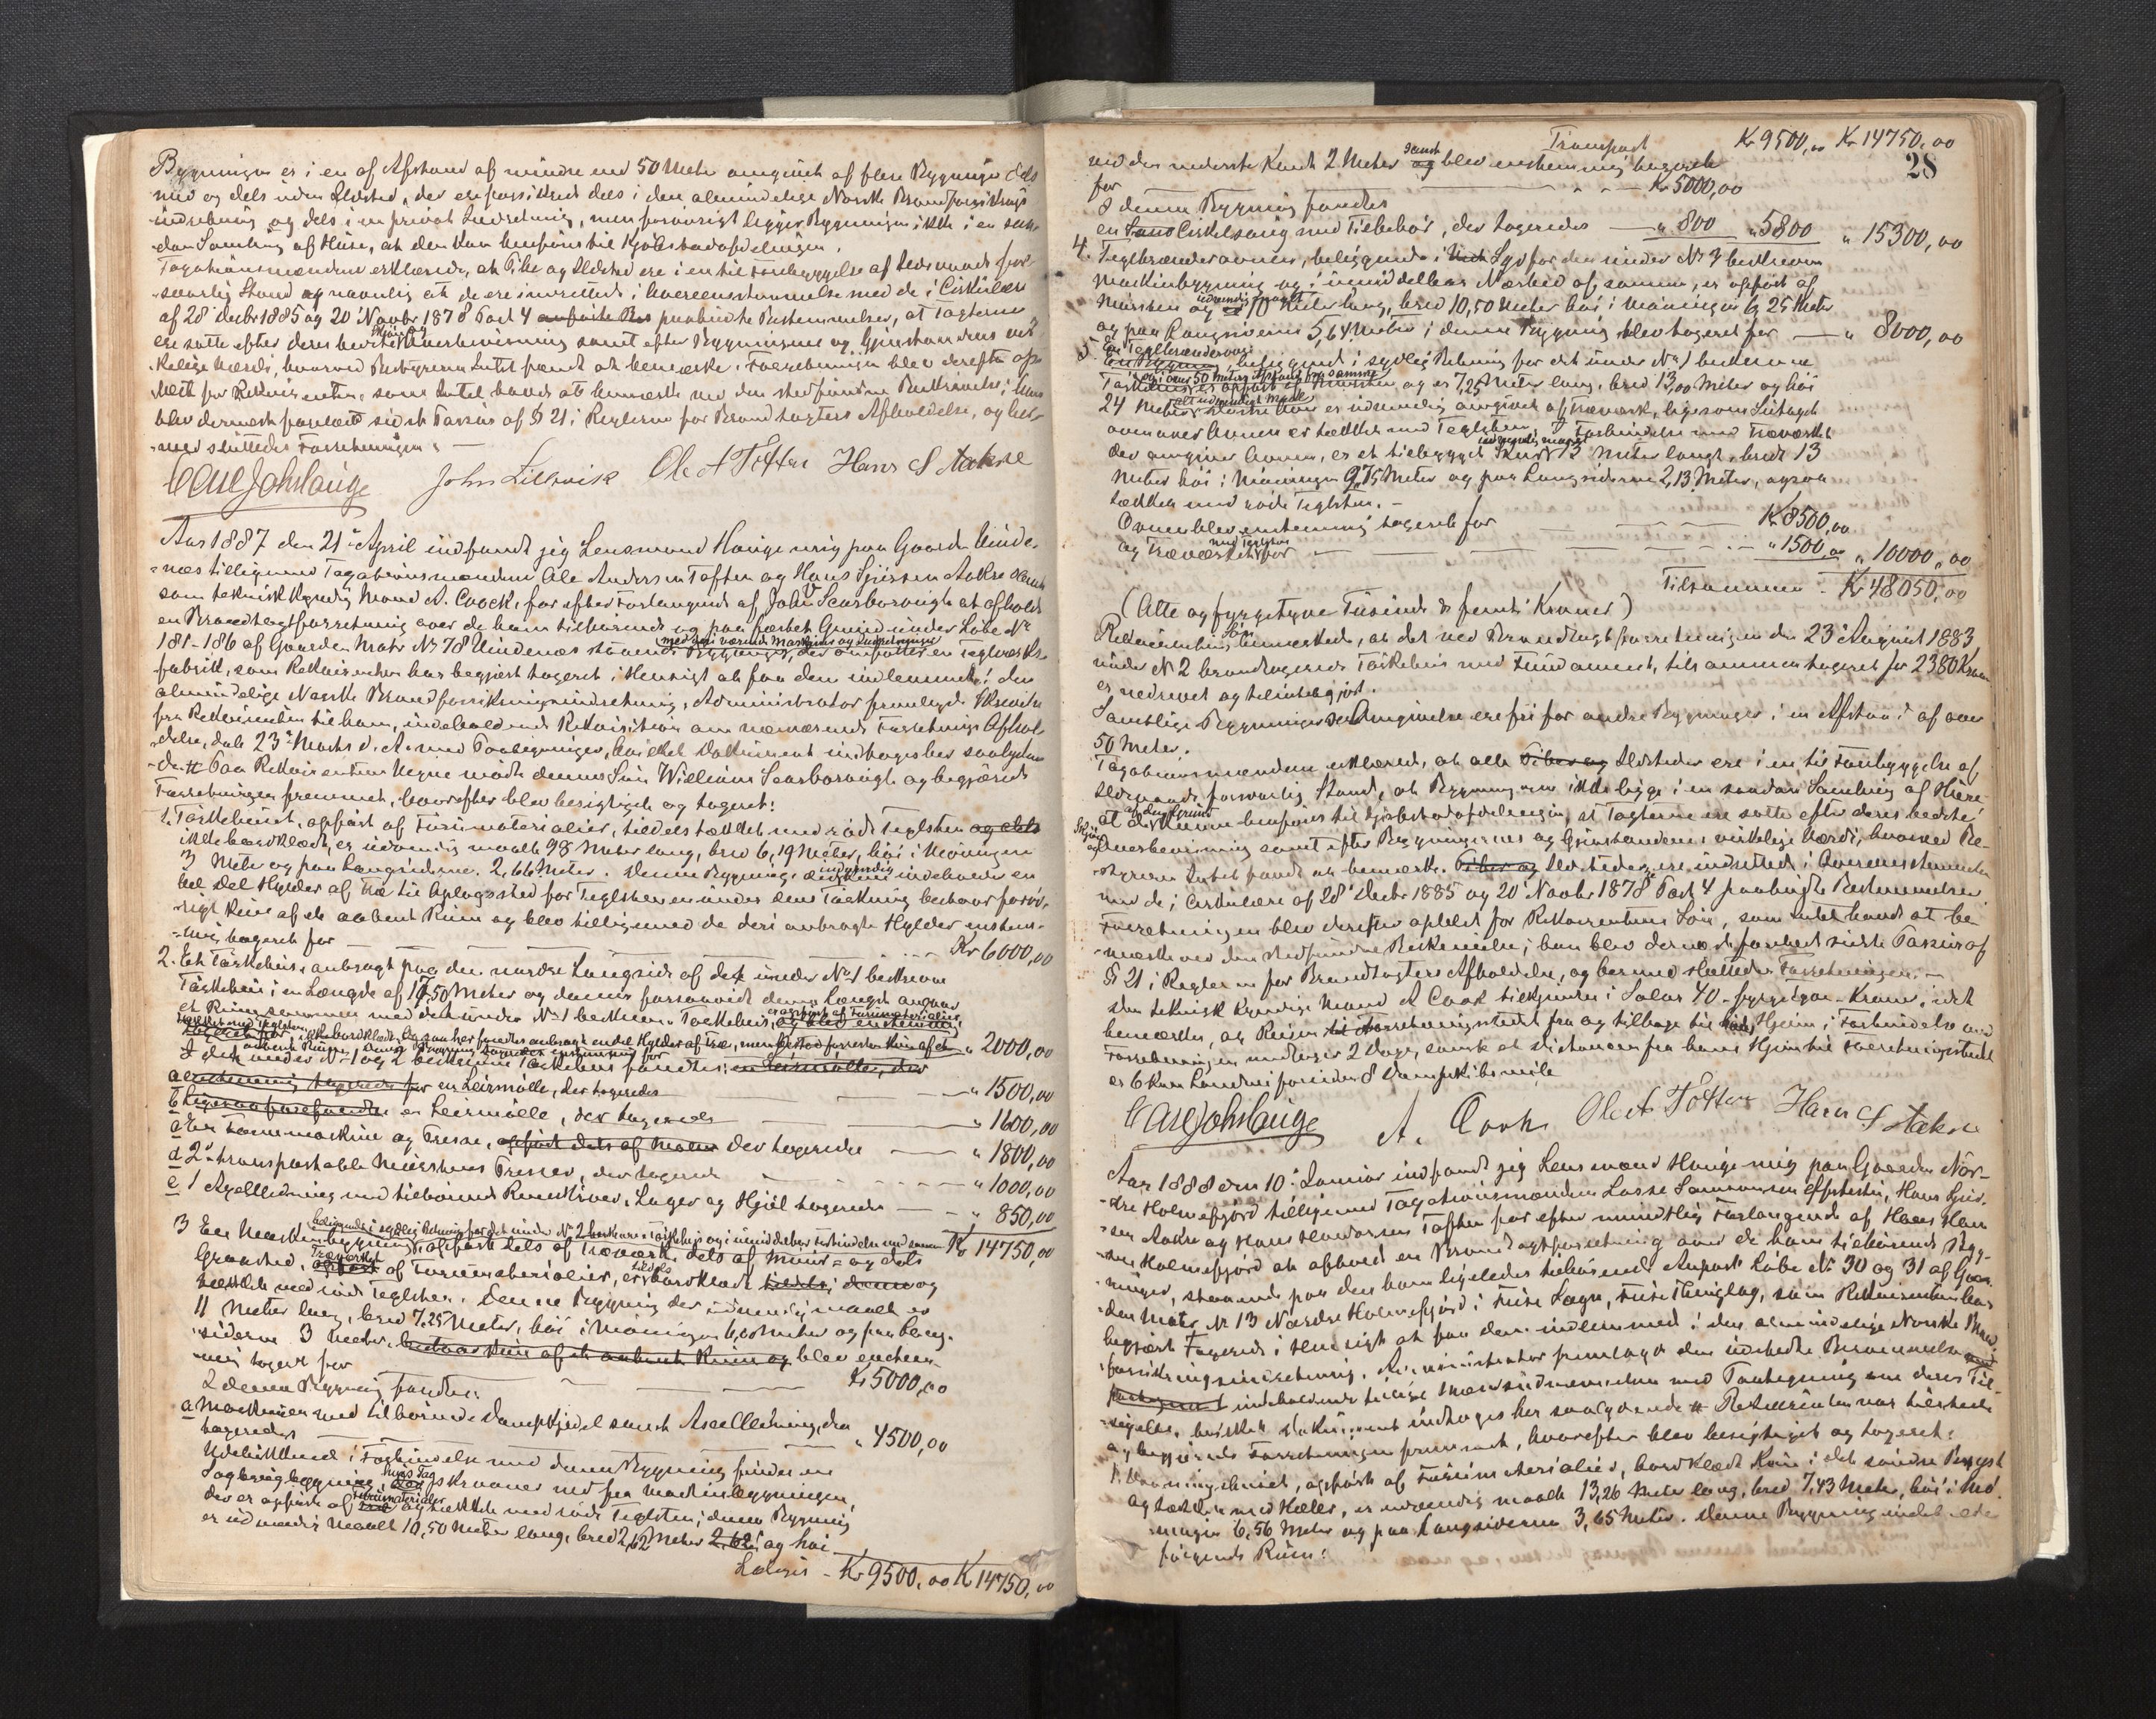 Bygningen er i en af Afstand af mindre end 50 Meter omgivet af flere Bygninger dels
med og dels uden Ildsted, der ere forsikkret dels i den almindelige Norske Brandforsikrings
indretning og dels i en privat Indretning, men forøvrigt ligger Bygningen ikke i en saa-
dan Samling af Huse, at den kan henføres til Kjøbstadafdelingen.
Taxationsmændene erklærede, at Pibe og Ildsted ere i en til Forebyggelse af Ildsvaade for-
svarlig Stand og navnlig at de ere indrettede i Overeensstemmelse med de i Cirkulære
af 28 Decbr 1885 og 20 Novbr 1878 Post 4 paabudte Bestemmelser, at Taxterne
ere satte efter deres bedste Skjøn og Overbevisning samt efter Bygningernes og Gjenstandenes vir-
kelige Værdi, hvorved Bestyreren Intet fandt at bemærke. Forretningen blev derefter op-
læst for Rekvirenten, som Intet havde at bemærke ved den stedfundne Beskrivelse; han
blev dernæst forelæst sidste Passus af § 21 i Reglerne for Brandtaxters Afholdelse, og her-
med sluttedes Forretningen.
Carl Joh Hauge John Lillevik Ole A Toften Hans S Aakre
Aar 1887 den 21de April indfandt jeg Lensmand Hauge mig paa Gaarden Vinde-
nes tilligemed Taxationsmændene Ole Andersen Toften og Hans Sjursen Aakre samt
som teknisk kyndig Mand A. Coock, for efter Forlangende af John Scarborough at afholde
en Brandtaxtforretning over de ham tilhørende og paa fæstet Grund under Løbe No
185-186 af Gaarden Matr No 78 Vindenes staaende Bygninger, med deri værende Maskiner og Indretninger der omfatter en Teglværks-
fabrik, som Rekvirenten har begjært taxeret i Hensigt at faa dem indlemmet i den
almindelige Norske Brandforsikringsindretning. Administrator fremlagde Skrivelse
fra Rekvirenten til ham, indeholdende Rekvisition om nærværende Forretnings Afhol-
delse, dat. 23de Marts d. A. med Paategninger, hvilket Dokument indtages her saalyden-
de # Paa Rekvirentens Vegne mødte dennes Søn William Scarborough og begjærede
Forretningen fremmet, hvorefter blev besigtiget og taxeret:
1. Tørkehuset, opført af Furumaterialier, tildels tækket med røde Teglsten og dels
ikke bordklædt, er udvendig maalt 98 Meter lang, bred 6,19 Meter, høi i Mønningen
3 Meter og paa Langsiderne 2,66 Meter. Denne Bygning indeholder en
hel Del Hylder af Træ til Oplagssted for Teglstenen under dens Tørkning, bestaar forøv-
rigt kun af et aabent Rum og blev tilligemed de deri anbragte Hylder enstem-
mig taxeret for Kr 6000,00
2. Et Tørkehus, anbragt paa den nordre Langside af det under No 1 beskrevne
Tørkehus i en Længde af 17,50 Meter og danner forsaavidt denne Længde angaar
et Rum sammen med det under No 1 beskrevne Tørkehus, er opført af Furumaterialier,
tækket med Teglsten, ikke bordklædt. Ogsaa her fandtes anbragt endel Hylder af Træ, men bestod forresten kun af et
aabent Rum. Denne Bygning taxeredes enstemmig for " 2000,00
I det under No 1 og 2 beskrevne Tørkehus fandtes:
a en Leirmølle, der taxeredes " 1500,00
b en Leirmølle, der taxeredes " 1600,00
c En Formemaskine og Presse, der taxeredes " 1800,00
d 2de transportable Murstens Presser, der taxeredes " 1000,00
e 1 Axelledning med tilhørende Remskiver, Lager og Hjul taxeredes " 850,00
Kr 14750,00
3 En Maskinbygning beliggende i sydlig Retning for det under No 2 beskrevne Tørkehus og i umiddelbar Forbindelse med samme
opført dels af Træværk, dels af Mur og dels
Graasten, Træværket af Furumaterialier, er tildels bordklædt og
tækket med røde Teglsten. Denne Bygning der udvendig maalt er
11 Meter lang, bred 7,25 Meter, høi i Mønningen 6,00 Meter og paa Lang-
siderne 3 Meter, bestaar kun af et aabent Rum og blev enstem-
mig taxeret for Kr 5000,00
I denne Bygning fandtes:
a Maskinen med tilhørende Dampkjedel samt Axelledning, der
taxeredes " 4500,00
Udelukkende i Forbindelse med denne Bygning findes en
Sagbrugbygning, hvis Tag skraaner ned fra Maskinbygningen,
der er opført af Furumaterialier og tækket med røde Teglsten; denne Bygning
er udvendig maalt 10,50 Meter lang, bred 2,62 Meter 2,62 og høi
Lateris Kr 9500,00 Kr 14750,00
28
Transport Kr 9500,00 Kr 14750,00
ved den nederste Kant 2 Meter samt blev enstemmig taxeret
for Kr 5000,00
I denne Bygning fandtes
en Cirkelsaug med Tilbehør, der taxeredes " 800 " 5800 " 15300,00
4. Teglbrænderovnen, beliggende i Syd for den under No 3 beskrevne
Maskinbygning og i umiddelbar Nærhed af samme, er opført af
Mursten og udvendig maalt 10 Meter lang, bred 10,50 Meter høi i Mønningen 6,25 Meter
og paa Langsiderne 5,64 Meter; denne Bygning blev taxeret for " 8000,00
5. En Teglbrænderovn, beliggende i sydlig Retning for det under No 1 beskrevne
Tørkehus og i over 50 Meters Afstand fra samme er opført af Mursten og er 7,25 Meter lang, bred 13,00 Meter og høi
24 Meter alt udvendigt Maal er udvendig omgivet af Træværk, ligesom Sutaget
ovenover Ovnen er tækket med Teglsten. I Forbindelse med Træværket
der omgiver Ovnen, er et tilbygget Skur udvendig maalt 13 Meter langt, bredt 13
Meter høi i Mønningen 9,75 Meter og paa Langsiderne 2,13 Meter, ogsaa
tækket med røde Teglsten.
Ovnen blev enstemmig taxeret for Kr 8500,00
og Træværket med Teglsten for " 1500,00 " 10000,00
Tilsammen Kr 48050,00
(Otte og fyrgetyve Tusinde & femti Kroner)
Rekvirentens Søn bemærkede, at det ved Brandtaxtforretningen den 23de August 1883
under No 2 brandtaxerede Tørkehus med Fundament, tilsammen taxeret for 2380 Kroner
er nedrevet og tilintetgjort.
Samtlige Bygningers Omgivelser ere fri for andre Bygninger i en Afstand af over
50 Meter.
Taxationsmændene erklærede, at alle Piber og Ildsteder ere i en til Forebyggelse af
Ildsvaade forsvarlig Stand, at Bygningerne ikke ligge i en saadan Samling af Huse
at de af den Grund kunne henføres til Kjøbstadafdelingen, at Taxterne ere satte efter deres bedste
Skjøn og Overbevisning samt efter Bygningernes og Gjenstandenes virkelige Værdi, hvorved Be-
styreren Intet fandt at bemærke. Piber og Ildstederne ere indrettede i Overensstemmelse
med de i Cirkulære af 28 Decbr 1885 og 20 Novbr 1878 Post 4 paabudte Bestemmelser
Forretningen blev derefter oplæst for Rekvirentens Søn, som Intet havde at be-
mærke ved den stedfundne Beskrivelse; han blev dernæst forelæst sidste Passus af
§ 21 i Reglerne for Brandtaxters Afholdelse, og hermed sluttedes Forretningen.
Den teknisk kyndige Mand A Cook tilkjendtes i Salar 40 - fyrgetyve - Kroner, idet
bemærkes, at Reisen til Forretningsstedet fra og tilbage til hans Hjem i Forbindelse med
Forretningen medtager 2 Dage, samt at Distancen fra hans Hjem til Forretningsstedet
er 6 km Landvei foruden 8 Dampskibsmile
Carl Joh Hauge A. Cook Ole A Toften Hans S Aakre
Aar 1888 den 10de Januar indfandt jeg Lensmand Hauge mig paa Gaarden Nor-
dre Holmefjord tilligemed Taxationsmændene Lasse Samsonsen Eftestøl, Hans Sjur-
sen Aakre og Hans Toften for efter mundtlig Forlangende af Hans Han-
sen Holmefjord at afholde en Brandtaxtforretning over de ham tilhørende Byg-
ninger, staaende paa den ham ligeledes tilhørende Anpart Løbe No 30 og 31 af Gaar-
den Matr No 13 Nordre Holmefjord i Fuse Sogn, Fuse Thinglag, som Rekvirenten har
begjært taxerede i Hensigt at faa dem indlemmet i den almindelige Norske Brand-
forsikringsindretning. Administrator fremlagde den udstedte Berammelse
indeholdende tillige Mændsudnævnelsen med Paategning om deres Til-
sigelse, hvilket Dokument indtages her saalydende # Rekvirenten var tilstede
og begjærede Forretningen fremmet, hvorefter blev besigtiget og taxeret:
1. Vaaningshuset, opført af Furumaterialier, bordklædt kun i det søndre Bygst
og tækket med Heller, er udvendig maalt 13,26 Meter lang, bred 7,43 Meter, høi i Mø-
ningen 6,56 Meter og paa Langsiderne 3,65 Meter. Denne Bygning indeholder
følgende Rum: